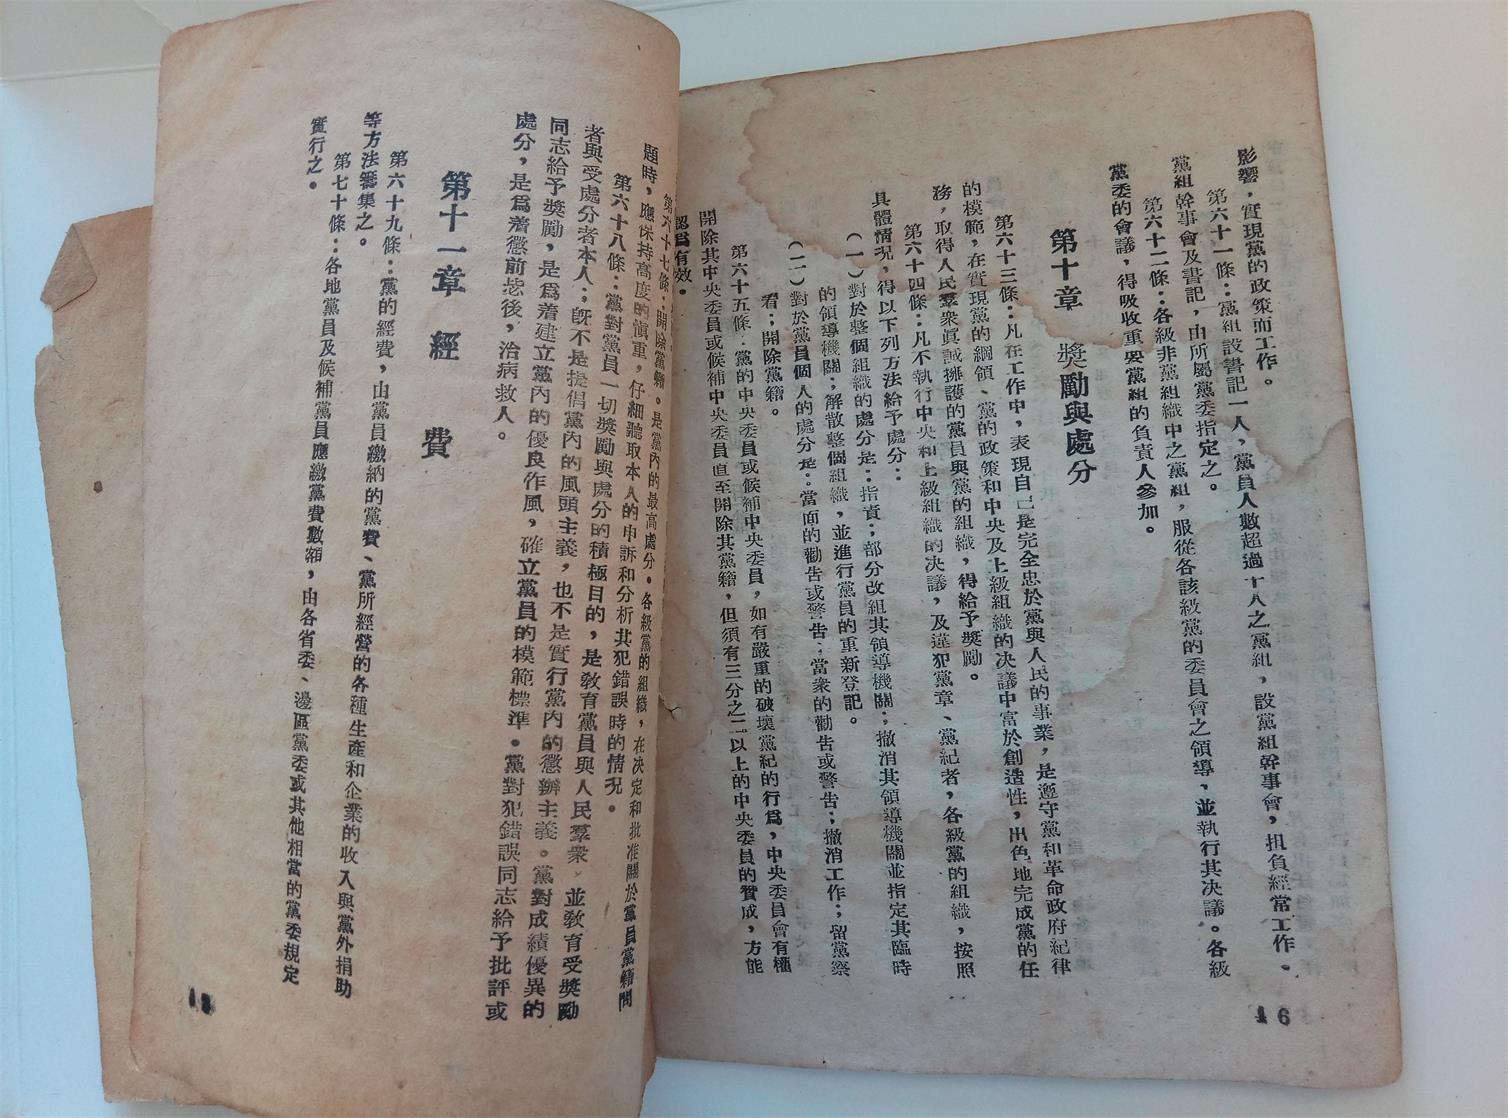 影響，實現黨的政策而工作。
第六十一條：黨組設書記一人，黨員人數超過十人之黨組，設黨組幹事會，担負經常工作。
黨組幹事會及書記，由所屬黨委指定之。
第六十二條：各級非黨組織中之黨組，服從各該級黨的委員會之領導，並執行其决議。各級
黨委的會議，得吸收重要黨組的負責人參加。
第十章　獎勵與處分
第六十三條：凡在工作中，表現自己是完全忠於黨與人民的事業，是遵守黨和革命政府紀律
的模範，在實現黨的綱領、黨的政策和中央及上級組織的决議中富於創造性，出色地完成黨的任
務，取得人民羣衆眞誠擁護的黨員與黨的組織，得給予獎勵。
第六十四條：凡不執行中央和上級組織的决議，及違犯黨章、黨紀者，各級黨的組織，按照
具體情况，得以下列方法給予處分：
（一）對於整個組織的處分是：指責；部分改組其領導機關；撤消其領導機關並指定其臨時
的領導機關；解散整個組織，並進行黨員的重新登記。
（二）對於黨員個人的處分是：當面的勸告或警告；當衆的勸告或警告；撤消工作；留黨察
看；開除黨籍。
第六十五條：黨的中央委員或候補中央委員，如有嚴重的破壞黨紀的行爲，中央委員會有權
開除其中央委員或候補中央委員直至開除其黨籍，但須有三分之二以上的中央委員的贊成，方能
認爲有效。
16
第六十七條：開除黨籍。是黨內的最高處分。各級黨的組織，在决定和批准關於黨員黨籍問
題時，應保持高度的慎重，仔細聽取本人的申訴和分析其犯錯誤時的情况。
第六十八條：黨對黨員一切獎勵與處分的積極目的，是敎育黨員與人民羣衆，並敎育受獎勵
者與受處分者本人；旣不是提倡黨內的風頭主義，也不是實行黨內的懲辦主義。黨對成績優異的
同志給予獎勵，是爲着建立黨內的優良作風，確立黨員的模範標準。黨對犯錯誤同志給予批評或
處分，是爲着懲前毖後，治病救人。
第十一章　經　費
第六十九條：黨的經費，由黨員繳納的黨費、黨所經營的各種生產和企業的收入與黨外捐助
等方法籌集之。
第七十條：各地黨員及候補黨員應繳黨費數額，由各省委、邊區黨委或其他相當的黨委規定
實行之。